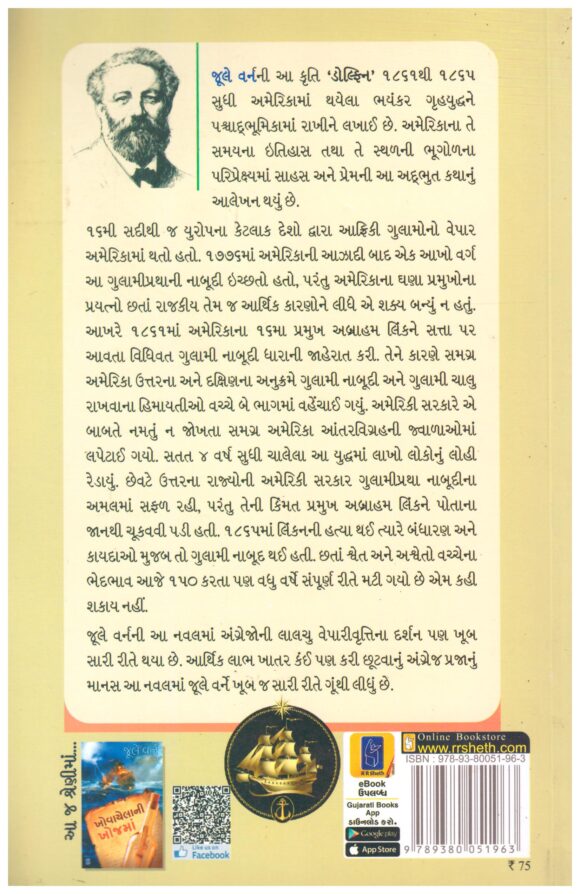 જૂલે વર્નની આ કૃતિ ‘ડોલ્ફિન’ ૧૮૬૧થી ૧૮૬૫
સુધી અમેરિકામાં થયેલા ભયંકર ગૃહયુદ્ધને
પશ્ચાદ્ભૂમિકામાં રાખીને લખાઈ છે. અમેરિકાના તે
સમયના ઇતિહાસ તથા તે સ્થળની ભૂગોળના
પરિપ્રેક્ષ્યમાં સાહસ અને પ્રેમની આ અદ્ભુત કથાનું
આલેખન થયું છે.
૧૬મી સદીથી જ યુરોપના કેટલાક દેશો દ્વારા આફ્રિકી ગુલામોનો વેપાર
અમેરિકામાં થતો હતો. ૧૭૭૬માં અમેરિકાની આઝાદી બાદ એક આખો વર્ગ
આ ગુલામીપ્રથાની નાબૂદી ઇચ્છતો હતો, પરંતુ અમેરિકાના ઘણા પ્રમુખોના
પ્રયત્નો છતાં રાજકીય તેમ જ આર્થિક કારણોને લીધે એ શક્ય બન્યું ન હતું.
આખરે ૧૮૬૧માં અમેરિકાના ૧૬મા પ્રમુખ અબ્રાહમ લિંકને સત્તા પર
આવતા વિધિવત ગુલામી નાબૂદી ધારાની જાહેરાત કરી. તેને કારણે સમગ્ર
અમેરિકા ઉત્તરના અને દક્ષિણના અનુક્રમે ગુલામી નાબૂદી અને ગુલામી ચાલુ
રાખવાના હિમાયતીઓ વચ્ચે બે ભાગમાં વહેંચાઈ ગયું. અમેરિકી સરકારે એ
બાબતે નમતું ન જોખતા સમગ્ર અમેરિકા આંતરવિગ્રહની જ્વાળાઓમાં
લપેટાઈ ગયો. સતત ૪ વર્ષ સુધી ચાલેલા આ યુદ્ધમાં લાખો લોકોનું લોહી
રેડાયું. છેવટે ઉત્તરના રાજ્યોની અમેરિકી સરકાર ગુલામીપ્રથા નાબૂદીના
અમલમાં સફળ રહી, પરંતુ તેની કિંમત પ્રમુખ અબ્રાહમ લિંકને પોતાના
જાનથી ચૂકવવી પડી હતી. ૧૮૬૫માં લિંકનની હત્યા થઈ ત્યારે બંધારણ અને
કાયદાઓ મુજબ તો ગુલામી નાબૂદ થઈ હતી. છતાં શ્વેત અને અશ્વેતો વચ્ચેના
ભેદભાવ આજે ૧૫૦ કરતા પણ વધુ વર્ષે સંપૂર્ણ રીતે મટી ગયો છે એમ કહી
શકાય નહીં.
જૂલે વર્નની આ નવલમાં અંગ્રેજોની લાલચુ વેપારીવૃત્તિના દર્શન પણ ખૂબ
સારી રીતે થયા છે. આર્થિક લાભ ખાતર કંઈ પણ કરી છૂટવાનું અંગ્રેજ પ્રજાનું
માનસ આ નવલમાં જૂલે વર્ને ખૂબ જ સારી રીતે ગૂંથી લીધું છે.
આ જ શ્રેણીમાં...
જૂલે વર્ન
ખોવાયેલાની
ખોજમાં
Like us on
Facebook
R R Sheth
eBook
ઉપલબ્ધ
Gujarati Books
App
ડાઉનલોડ કરો.
Google play
App Store
Online Bookstore
www.rrsheth.com
ISBN : 978-93-80051-96-3
9 789380 051963
₹ 75